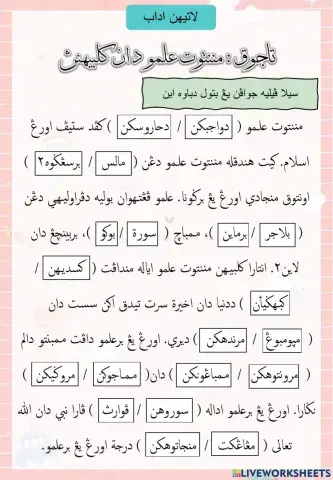 لاتيهن اداب
تاجوق : منونتوت علمو دان كلبيهنڽ
سيلا ڤيليه جواڤن يڠ بتول دباوه اين
منونتوت علمو ( دواجبكن / دحاروسكن ) كڤد ستيڤ اورڠ
اسلام. كيت هندقله منونتوت علمو دڠن ( مالس / برسڠݢوه٢ )
اونتوق منجادي اورڠ يڠ برݢونا. علمو ڤڠتهوان بوليه دڤراوليهي دڠن
( بلاجر / برماين )، ممباچ ( سورة / بوكو )، بربينچڠ دان
لاين٢. انتارا كلبيهن منونتوت علمو اياله منداڤت ( كسديهن /
كبهݢيأن ) ددنيا دان اخيرة سرت تيدق اكن سست دان
( مڽومبوڠ / مرندهكن ) ديري. اورڠ يڠ برعلمو داڤت ممبنتو دالم
( مرونتوهكن / ممباڠونكن ) دان ( مماجوكن / مروݢيكن )
نݢارا. اورڠ يڠ برعلمو اداله ( سوروهن / ڤوارث ) ڤارا نبي دان الله
تعالى ( مڠاڠكت / منجاتوهكن ) درجة اورڠ يڠ برعلمو.
LIVEWORKSHEETS